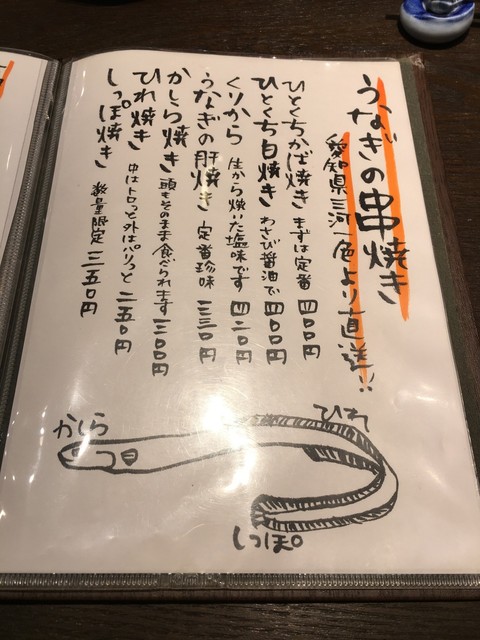 うなぎの串焼き
愛知県三河一色より直送!!
ひとくちかば焼き まずは定番 四〇〇円
ひとくち白焼き わさび醤油で 四〇〇円
くりから 生から焼いた塩味です 四二〇円
うなぎの肝焼き 定番珍味 三三〇円
かしら焼き 頭もそのまま食べられます 三〇〇円
ひれ焼き 中はトロっと外はパリっと 二五〇円
しっぽ焼き 数量限定 二五〇円
ひれ
かしら
しっぽ